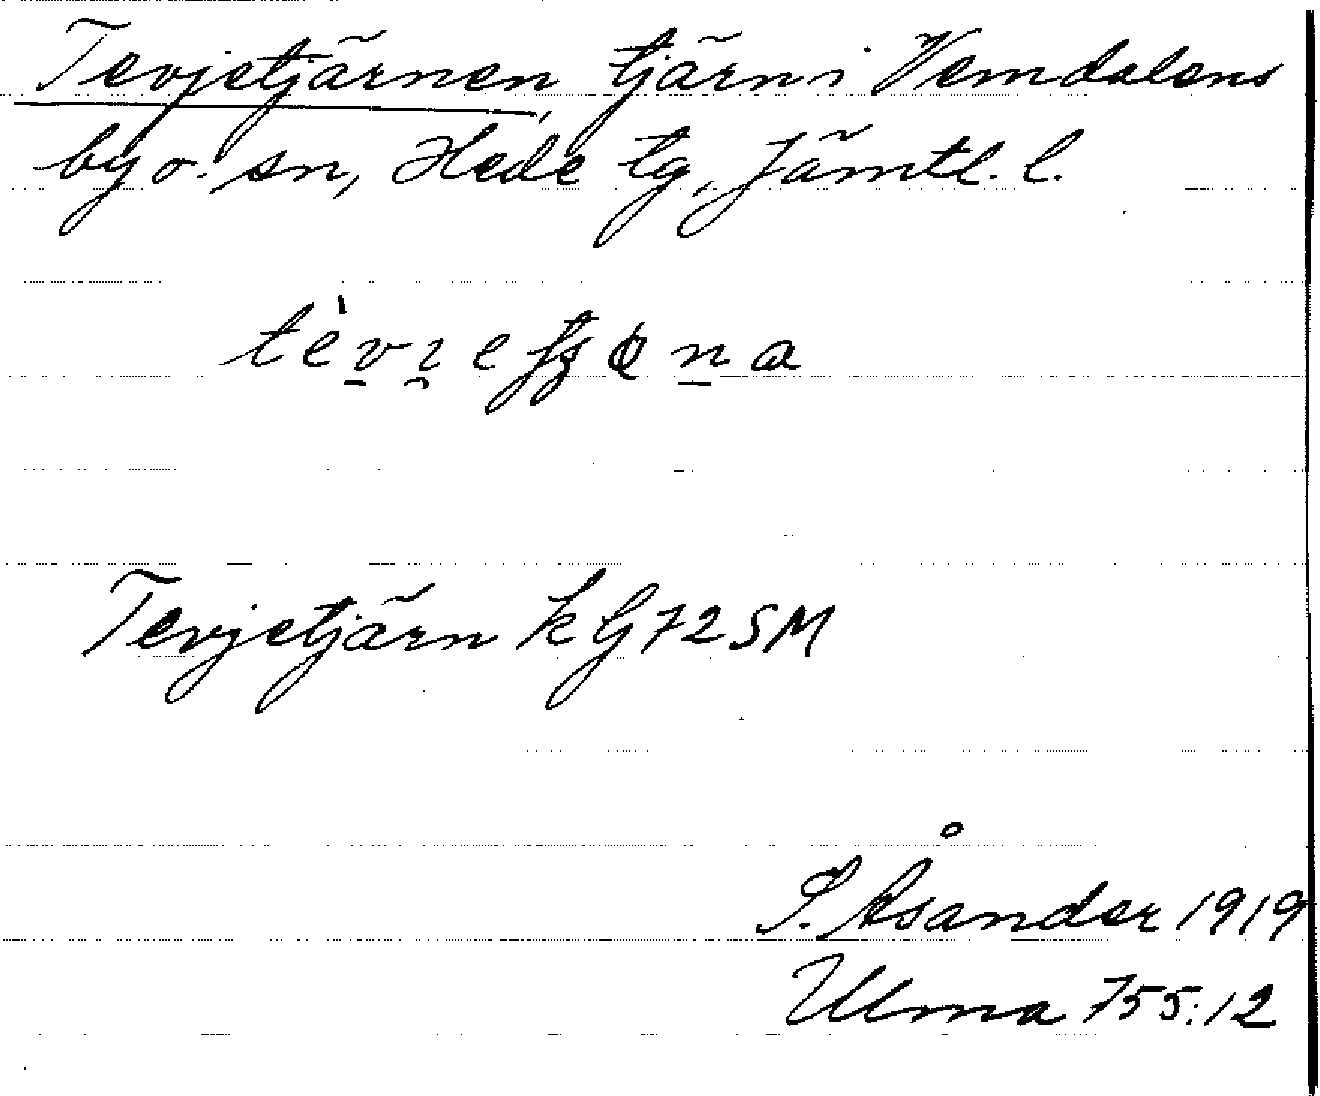 Tevjetjärnen, tjärn i Vemdalens
by o. sn, Hede tg, Jämtl. l.
Tevjetjärn k G72SM
S. Åsander 1919
Ulma 755:12